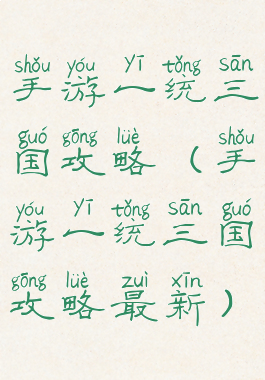 shǒu yóu yī tǒng sān
手游一统三
guó gōng lüè shǒu
国攻略（手
yóu yī tǒng sān guó
游一统三国
gōng lüè zuì xīn
攻略最新）